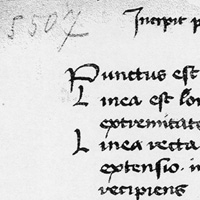 5507
Incipit p
Punctus est
Linea est lon
extremitate
Linea recta
extensio · i
recipiens